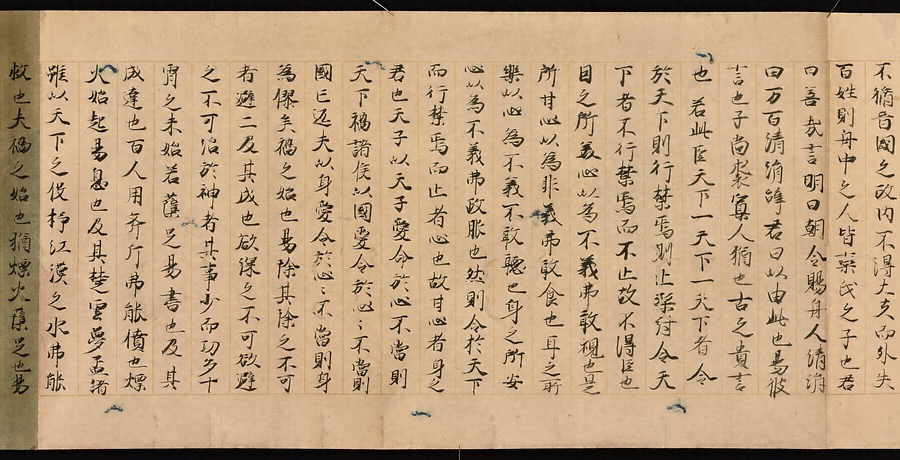 不脩晉國之政内不得大夫而外失
百姓則舟中之人皆欒氏之子也君
曰善哉言明日朝令賜舟人清涓
田万百清涓辞君曰以由此也易彼
言也子尚喪寡人猶也古之貴言
也若此臣天下一天下一天下者令
於天下則行禁焉則止桀紂令天
下者不行禁焉而不止故不得臣也
目之所美心以為不義弗敢視也口之
所甘心以為非義弗敢食也耳之所
樂以心為不義不敢聽也身之所安
心以為不義弗敢服也然則令於天下
而行禁焉而止者心也故甘心者身之
君也天子以天子愛令於心不當則
天下禍諸侯以國愛令於心〻不當則
國亡匹夫以身愛令於心〻不當則身
為僇矣禍之始也易除其除之不可
者避之及其成也欲除之不可欲避
之不可治於神者其事少而功多干
霄之木始若蘖足易書也及其
成達也百人用斧斤弗能僨也熛
火始起易息也及其焚雲夢孟諸
雖以天下之役抒江漢之水弗能
救也夫禍之始也猶熛火蘖足也易